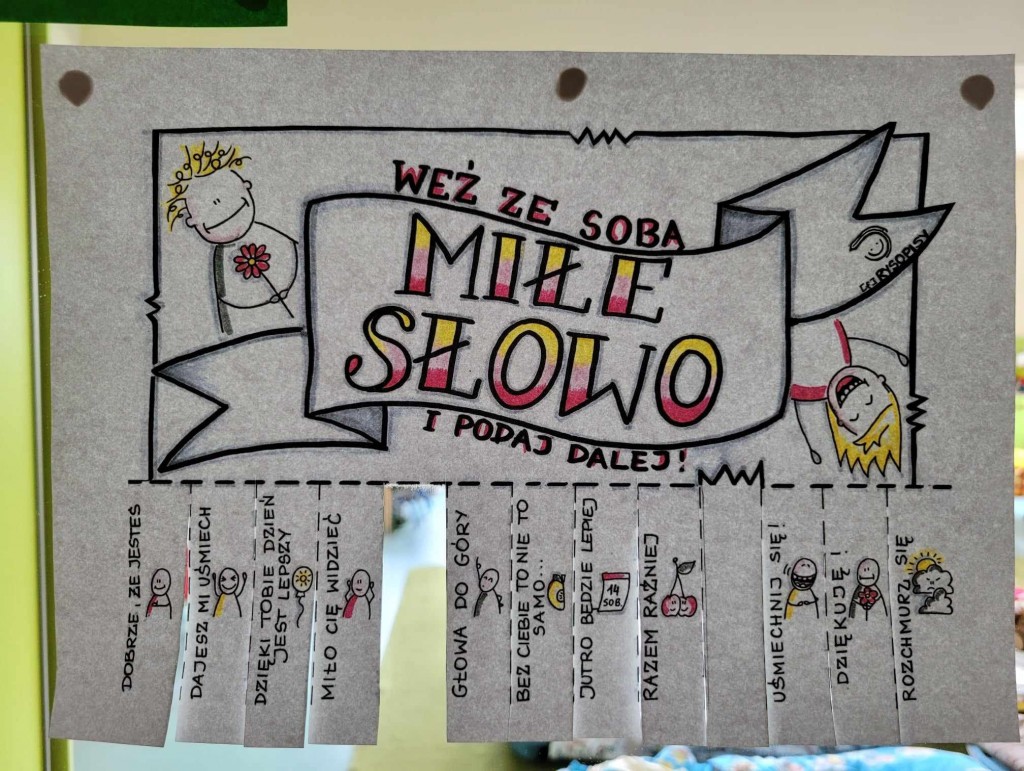 WEŹ ZE SOBĄ
MIŁE
SŁOWO
I PODAJ DALEJ!
RYSOPISY
DOBRZE, ŻE JESTEŚ
DAJESZ MI UŚMIECH
DZIĘKI TOBIE DZIEŃ
JEST LEPSZY
MIŁO CIĘ WIDZIEĆ
GŁOWA DO GÓRY
BEZ CIEBIE TO NIE TO
SAMO...
JUTRO BĘDZIE LEPIEJ
14
SOB.
RAZEM RAŹNIEJ
UŚMIECHNIJ SIĘ!
DZIĘKUJĘ!
ROZCHMURZ SIĘ